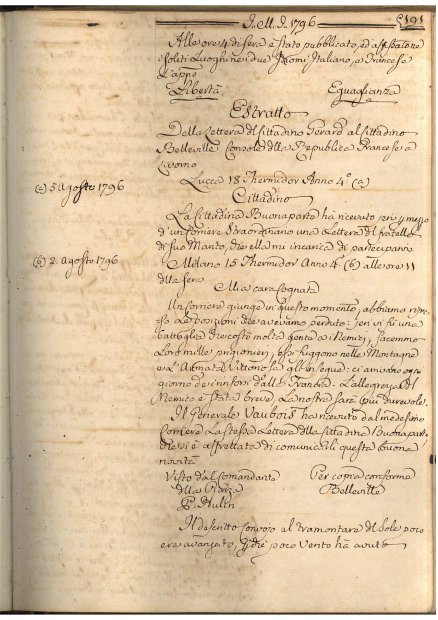 I.M.I. 1796
191
Alle ore 4 di sera è stato pubblicato, ed affisso alli
soliti Luoghi nei due Idiomi Italiano, e Francese
L'appo.
Libertà Eguaglianza
Estratto
Della Lettera del Cittadino Gerard al Cittadino
Belleville Console della Republica Francese a
Livorno
Lucca 18 Thermidor Anno 4.º (a)
(a) 5 Agosto 1796
Cittadino
La Cittadina Buonaparte ha ricevuto jeri p. mezzo
d'un Corriere Straordinario una Lettera del fratello
di suo Marito, che ella mi incarica di partecipare
(b) 2. agosto 1796
Milano 15 Thermidor Anno 4.º (b) alle ore 11
della sera
Mia cara Cognata
Un Corriere giunge in questo momento, abbiamo ripre-
so le Posizioni che avevamo perdute: Jeri vi fù una
battaglia che costò molta gente a i Nemici, facemmo
Loro mille prigionieri, essi fuggono nelle Montagne
e l'Armata Vittoriosa gl'insegue: ci arrivano ogni
giorno dei rinforzi dalla Francia. L'allegrezza del
Nemico è stata breve, La nostra sarà più durevole.
Il Generale Vaubois ha ricevuto dal medesimo
Corriere La stessa Lettera della Cittadina Buonaparte
che si è affrettata di comunicarli questa buona
novità
Visto dal Comandante Per copia conforme
della Piazza Belleville
P. Hulin
Il descritto Convojo al tramontare del Sole poco
era avanzato, p. che poco Vento ha avuto